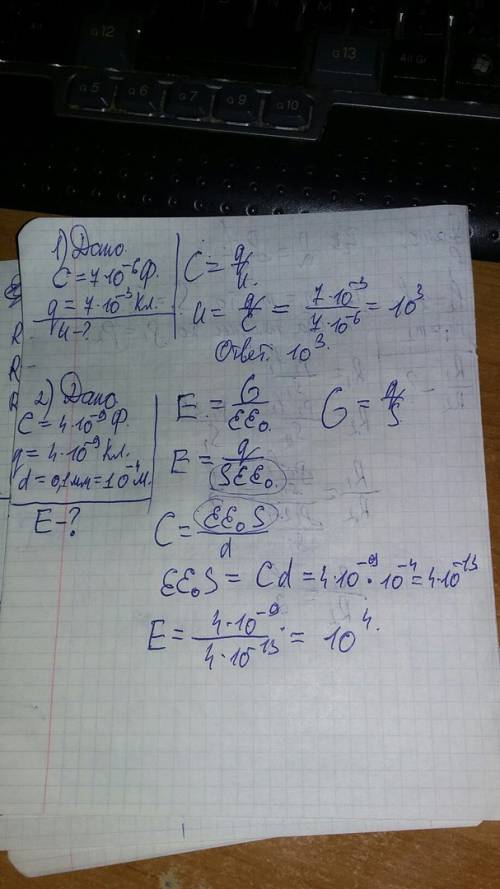 G12
G13
Alt Gr
G5 G6 G7 G9 G10
1) Дано.
C = 7·10⁻⁶ Ф.
q = 7·10⁻³ Кл.
u - ?
C = q/u.
u = q/C = 7·10⁻³/7·10⁻⁶ = 10³
Ответ. 10³.
R -
R -
R
2) Дано
C = 4·10⁻⁹ Ф.
q = 4·10⁻⁹ Кл.
d = 0,1 мм = 10⁻⁴ м.
E - ?
E = G/εε₀. G = q/S
E = q/Sεε₀.
C = εε₀S/d
εε₀S = Cd = 4·10⁻⁹·10⁻⁴ = 4·10⁻¹³
E = 4·10⁻⁹/4·10⁻¹³ = 10⁴.